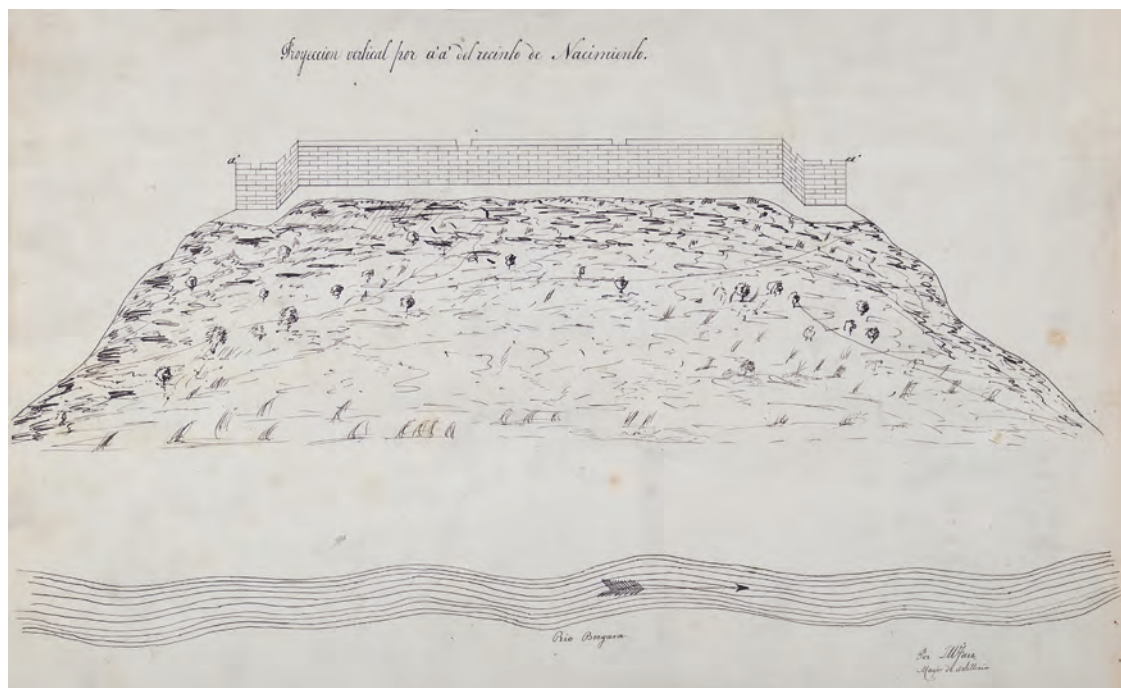 Proyeccion vertical por a'a' del recinto de Nacimiento.
a' a'
Rio Bergara
Por
Mayor de artilleria